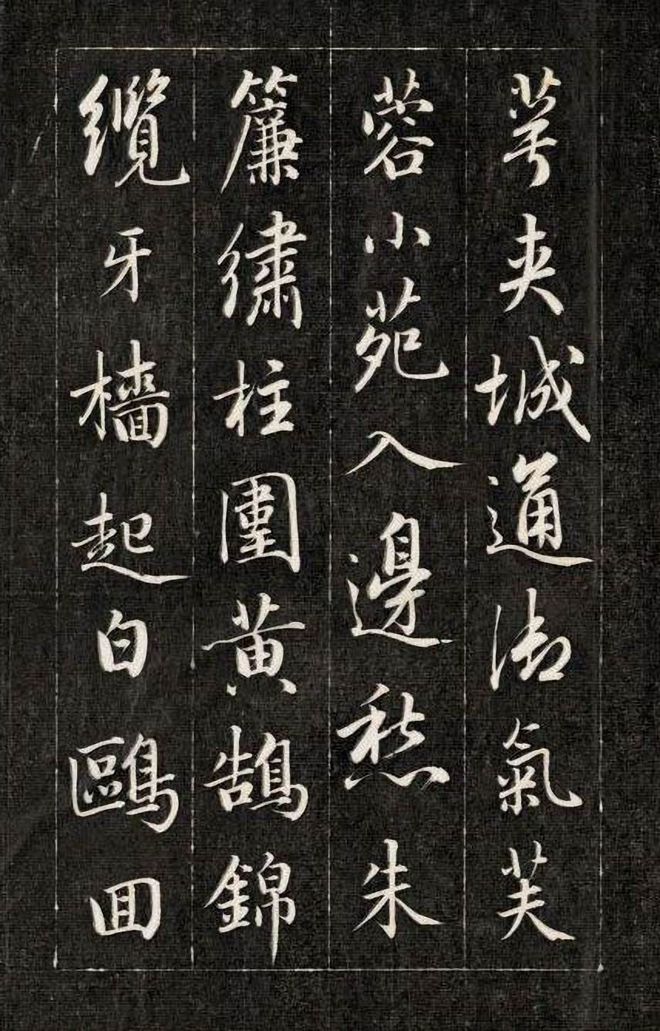 萼夹城通御氣芙
蓉小苑入邊愁朱
簾繡柱圍黄鵠錦
纜牙檣起白鷗回